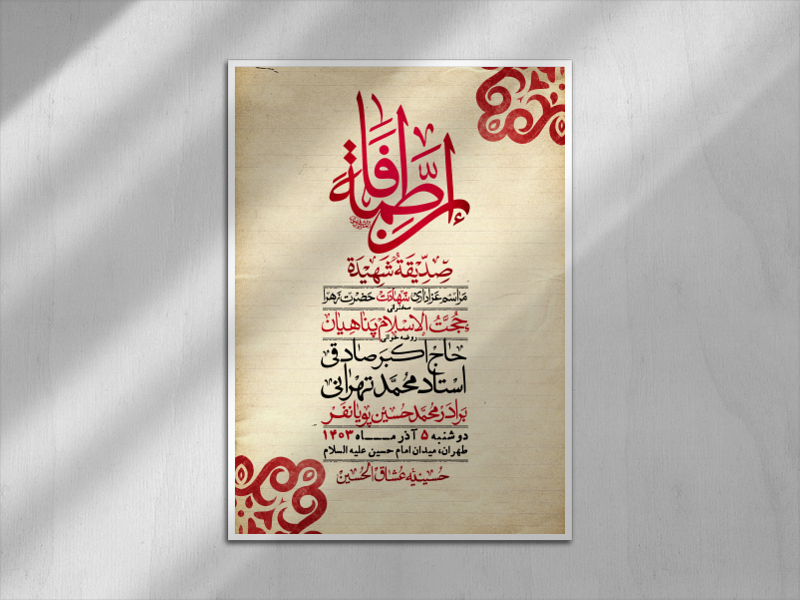 إن فاطمة
صِدِّیقَةٌ شَهِیدَة
مراسم عزاداری شهادت حضرت زهرا
سخنرانی
حجت الاسلام پناهیان
روضه خوانی
حاج اکبر صادقی
استاد محمد تهرانی
برادر محمد حسین پویانفر
دوشنبه ۵ آذر مـــاه ۱۴۰۳
طهران، میدان امام حسین علیه السلام
حسینیه عشاق الحسین